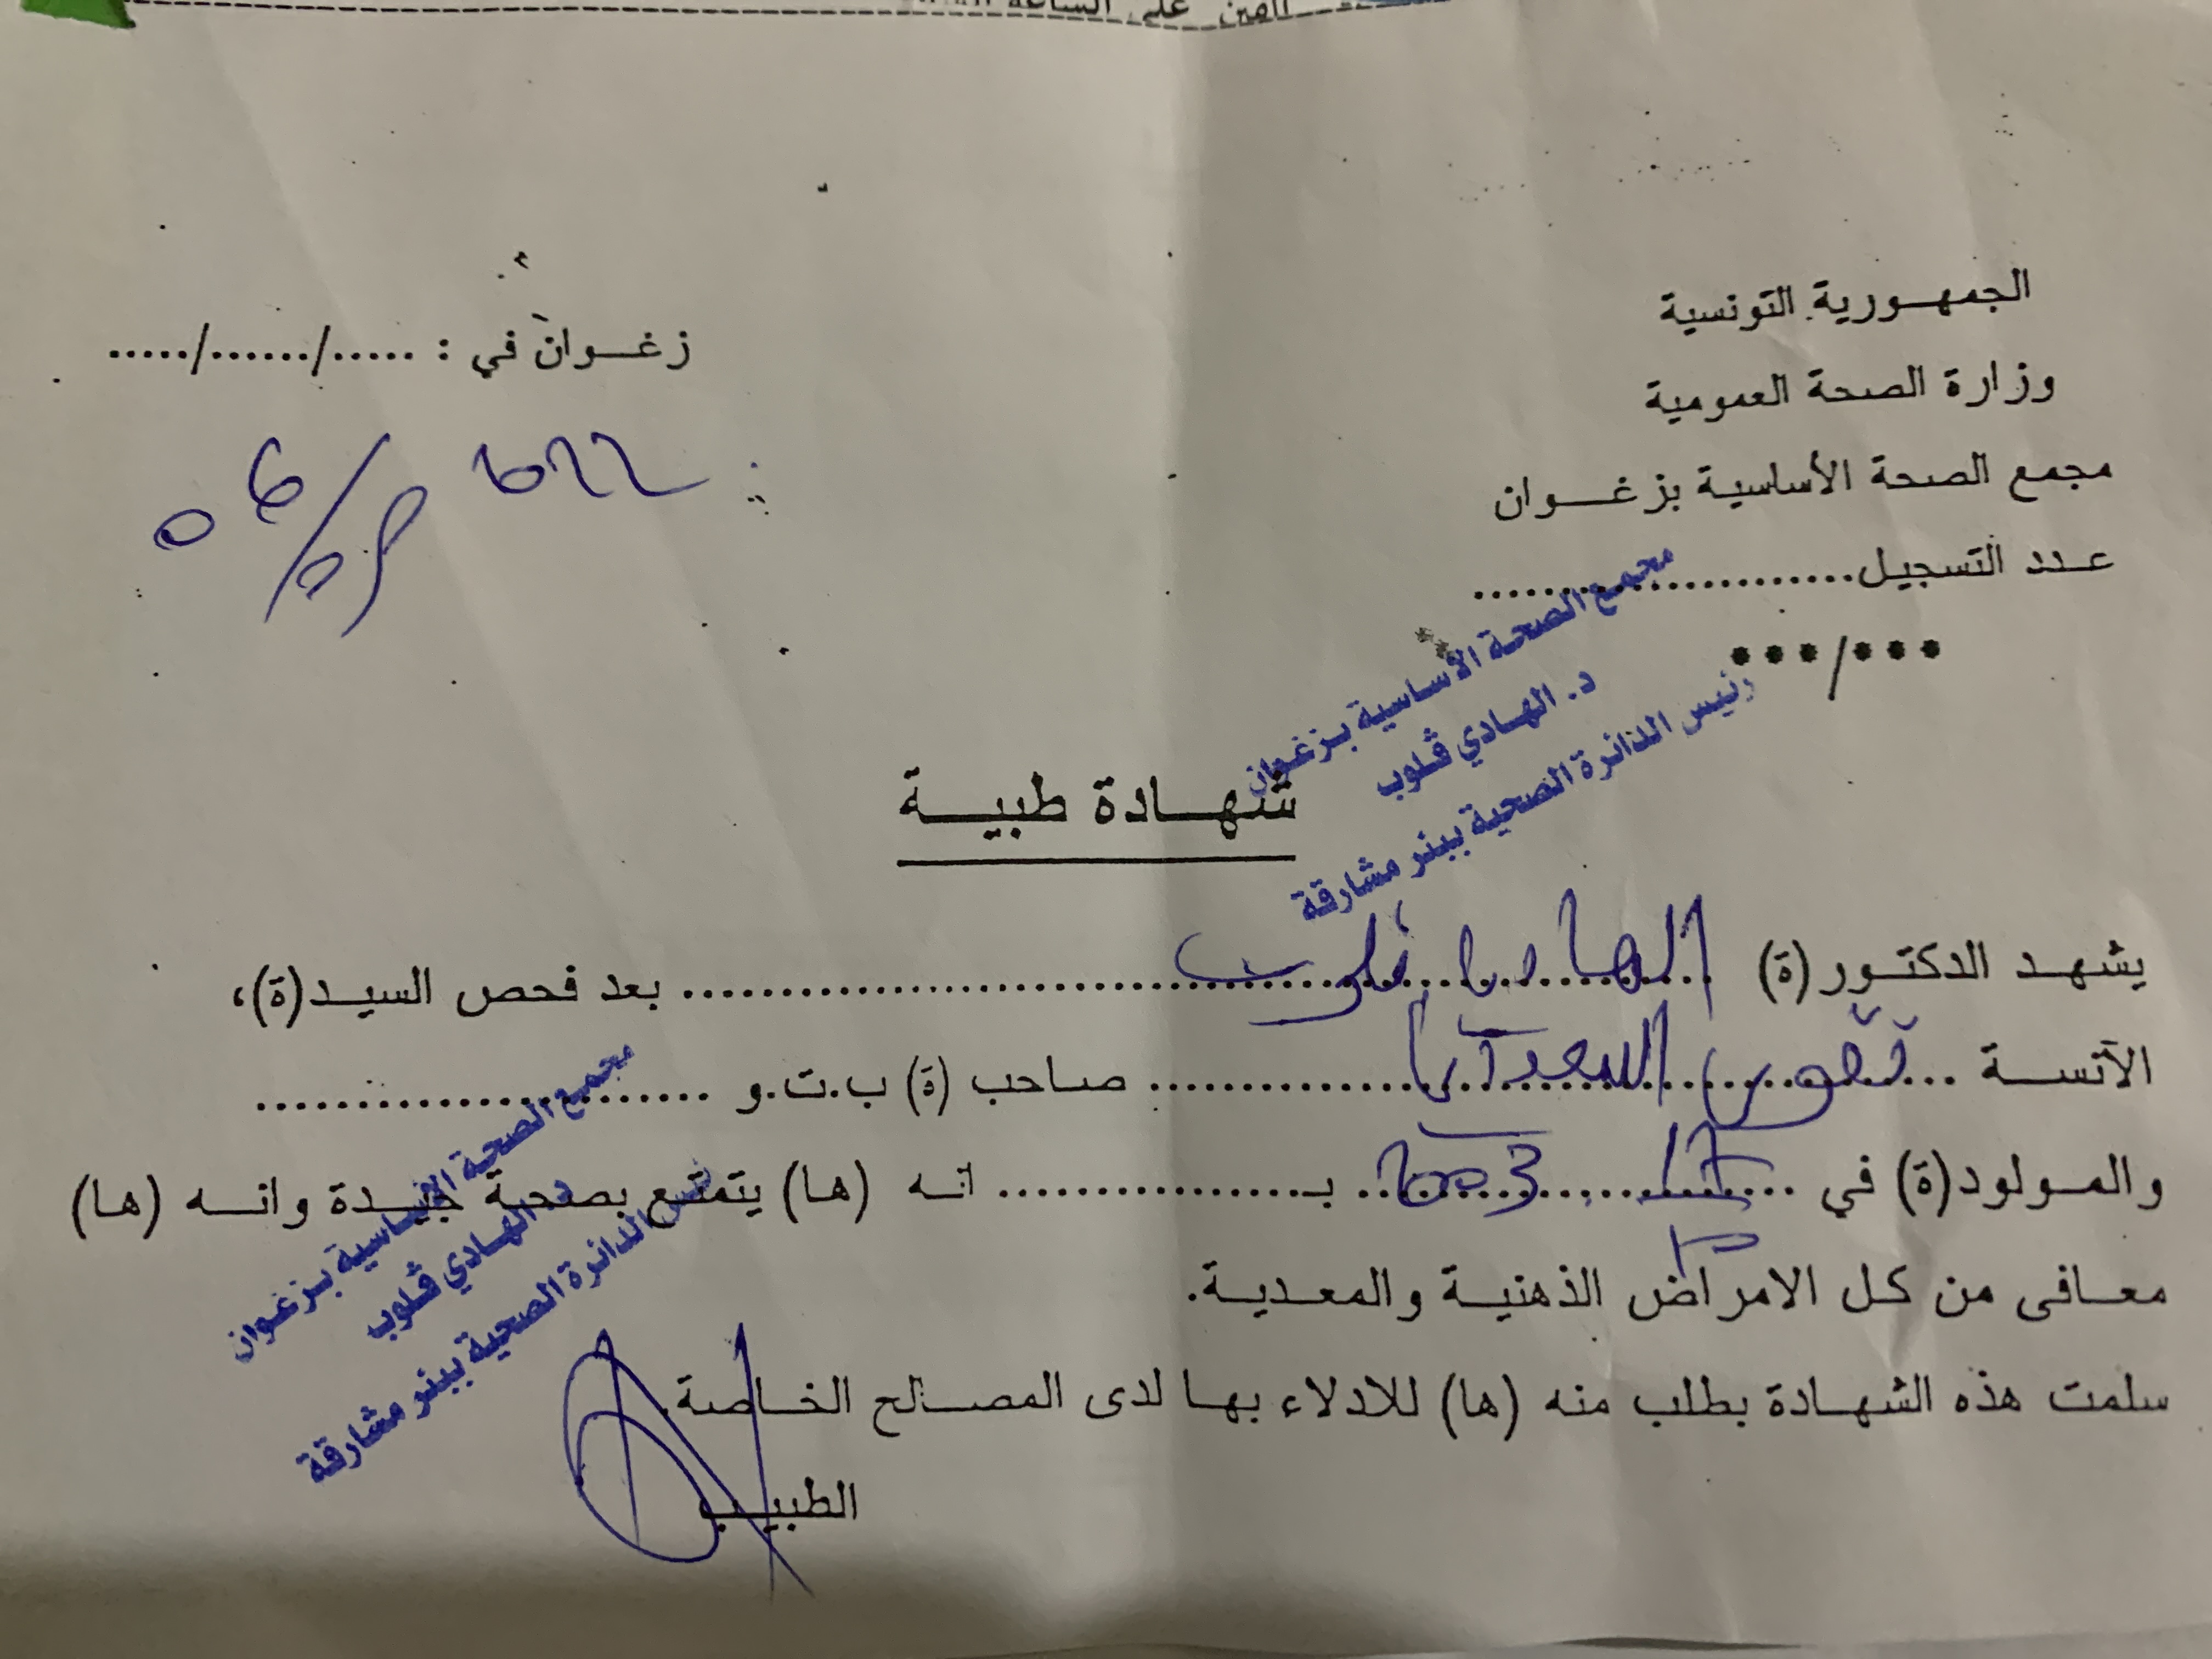 الجمهورية التونسية
وزارة الصحة العمومية
مجمع الصحة الأساسية بزغوان
عدد التسجيل......................
***/***
زغوان في : ...../....../.....
06
مجمع الصحة الأساسية بزغوان
د. الهادي ڤلوب
رئيس الدائرة الصحية ببئر مشارقة
شهادة طبية
يشهد الدكتور(ة) الهادي ڤلوب بعد فحص السيد(ة)،
الآنسة ... السعداني صاحب (ة) ب.ت.و ........................
والمولود(ة) في ... 2003 بـ................. انه (ها) يتمتع بصحة جيدة وانه (ها)
معافى من كل الامراض الذهنية والمعدية.
سلمت هذه الشهادة بطلب منه (ها) للادلاء بها لدى المصالح الخاصة.
الطبيب
مجمع الصحة الأساسية بزغوان
د. الهادي ڤلوب
رئيس الدائرة الصحية ببئر مشارقة